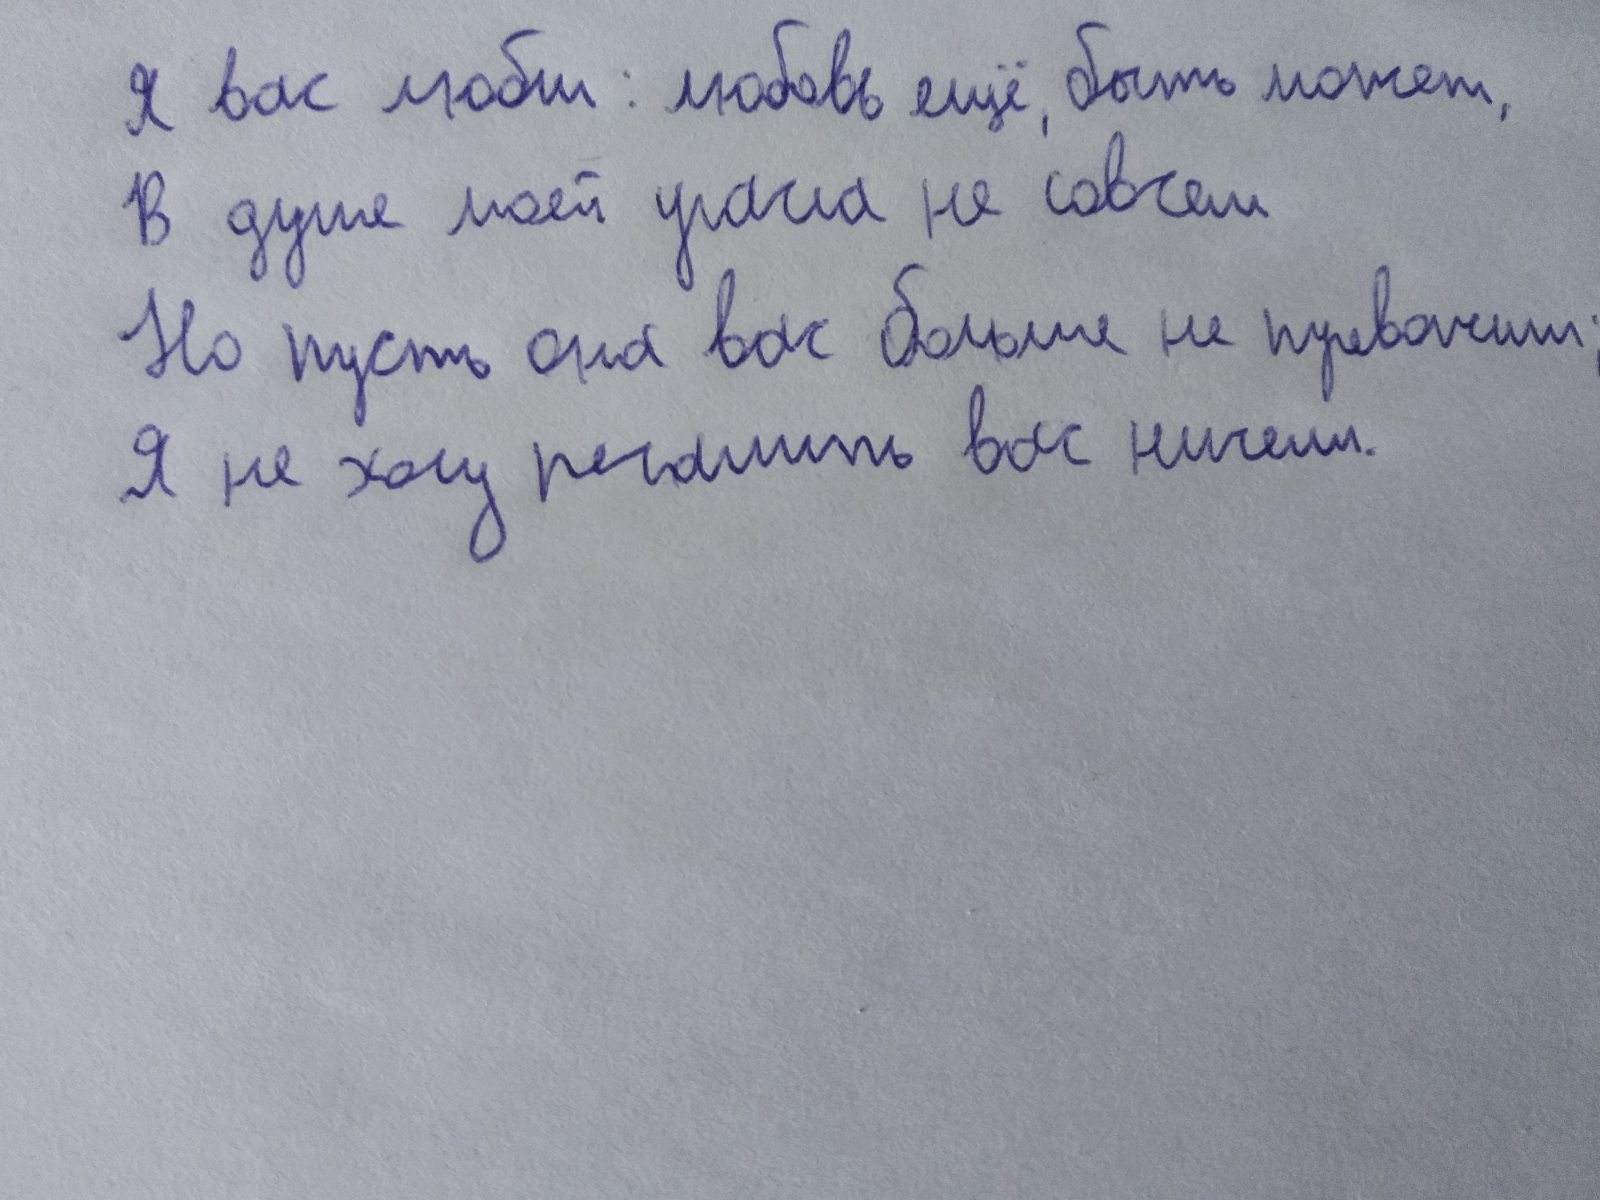 Я вас любил: любовь ещё, быть может,
В душе моей угасла не совсем
Но пусть она вас больше не тревожит;
Я не хочу печалить вас ничем.